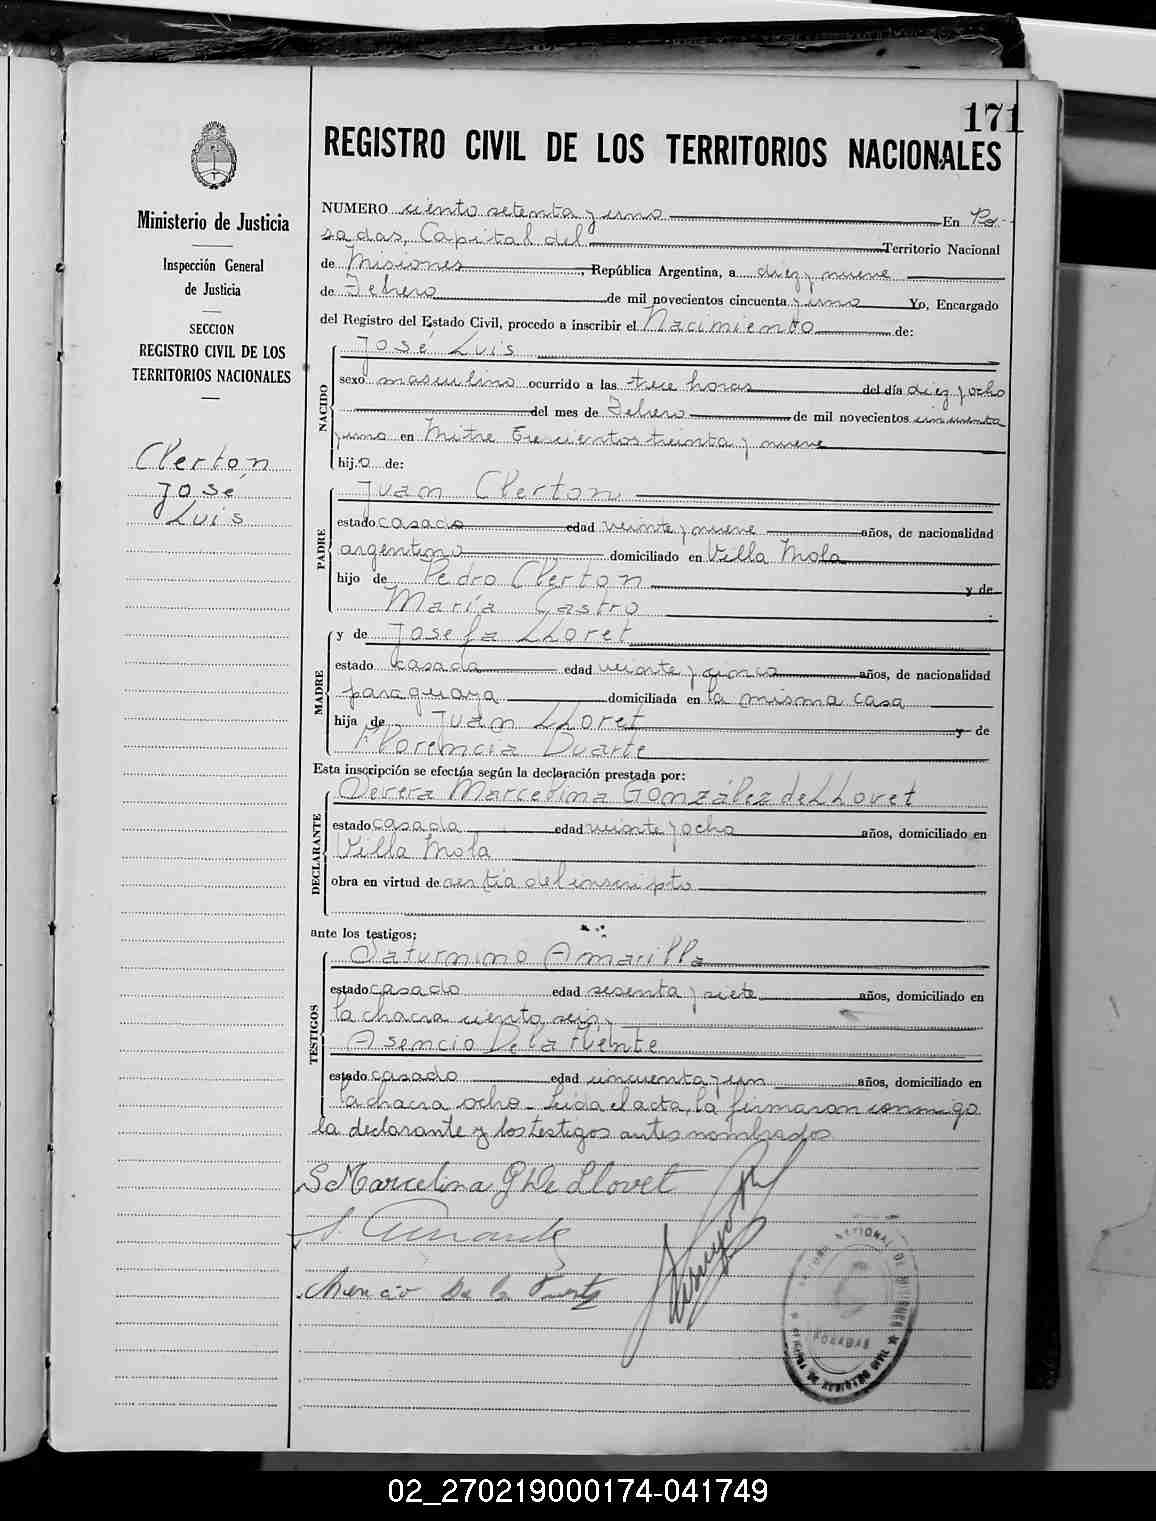 171
REGISTRO CIVIL DE LOS TERRITORIOS NACIONALES
Ministerio de Justicia
Inspección General
de Justicia
SECCION
REGISTRO CIVIL DE LOS
TERRITORIOS NACIONALES
Clerton
José
Luis
NUMERO ciento setenta y uno En Po-
sadas, Capital del Territorio Nacional
de Misiones, República Argentina, a diez y nueve
de Febrero de mil novecientos cincuenta y uno Yo, Encargado
del Registro del Estado Civil, procedo a inscribir el Nacimiento de:
NACIDO
José Luis
sexo masculino ocurrido a las trece horas del día diez y ocho
del mes de Febrero de mil novecientos cincuenta
y uno en Mitre trescientos treinta y nueve
hijo de:
PADRE
Juan Clerton
estado casado edad veinte y nueve años, de nacionalidad
argentino domiciliado en Villa Mola
hijo de Pedro Clerton y de
María Castro
MADRE
y de Josefa LLoret
estado casada edad veinte y cinco años, de nacionalidad
paraguaya domiciliada en la misma casa
hija de Juan LLoret y de
Florencia Duarte
Esta inscripción se efectúa según la declaración prestada por:
DECLARANTE
Marcelina González de LLovet
estado casada edad veinte y ocho años, domiciliado en
Villa Mola
obra en virtud de ser tia del inscripto
ante los testigos:
TESTIGOS
Saturnino Amarilla
estado casado edad sesenta y siete años, domiciliado en
la chacra ciento seis, y
Asencio De la Fuente
estado casado edad cincuenta y un años, domiciliado en
la chacra ocho. Leida el acta, la firmaron conmigo
la declarante y los testigos antes nombrados
S Marcelina G de Llovet
Asencio De la Fuente
POSADAS
02_270219000174-041749